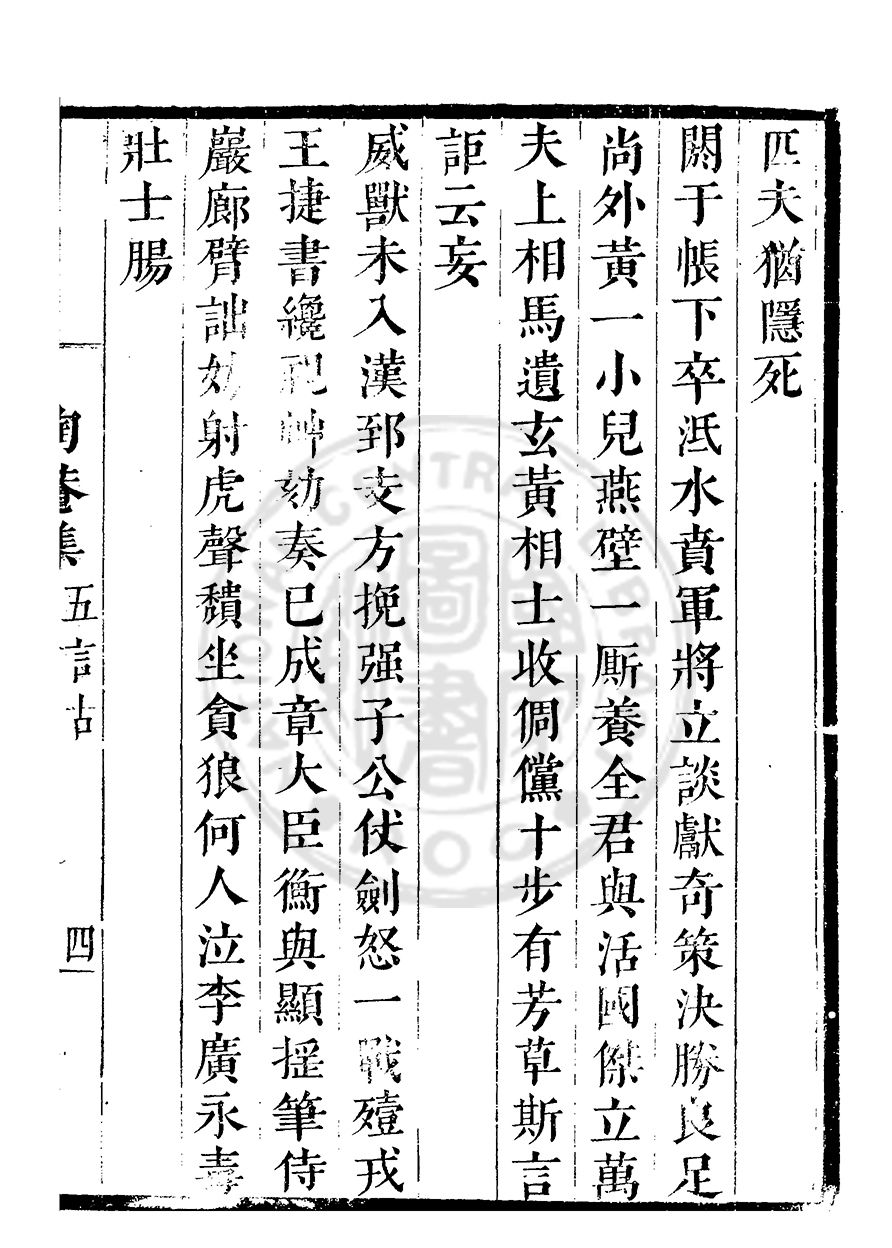 匹夫猶隱死
閼于帳下卒泜水賁軍將立談獻奇策決勝良足
尚外黃一小兒燕壁一厮養全君與活國傑立萬
夫上相馬遺玄黃相士收倜儻十步有芳草斯言
詎云妄
威獸未入漢郅支方挽强子公仗劍怒一戰殪戎
王捷書纔到劾奏已成章大臣衡與顯揺筆侍
巖廊臂詘妨射虎聲穨坐貪狼何人泣李廣永壽
壯士腸
陶菴集 五言古 四